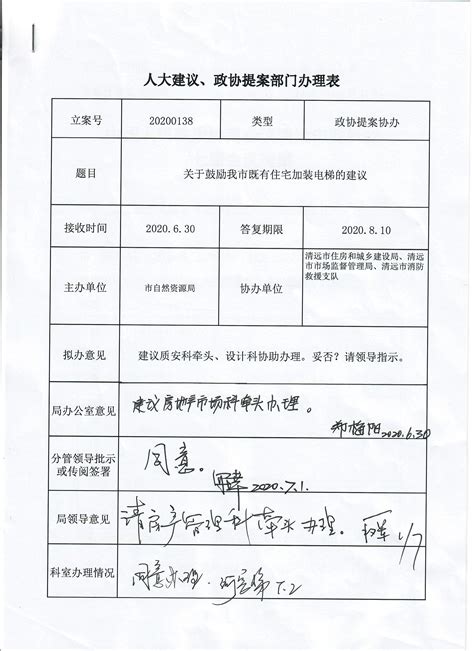 人大建议、政协提案部门办理表
立案号 20200138 类型 政协提案协办
题目 关于鼓励我市既有住宅加装电梯的建议
接收时间 2020.6.30 答复期限 2020.8.10
主办单位 市自然资源局 协办单位 清远市住房和城乡建设局、清远
市市场监督管理局、清远市消防
救援支队
拟办意见 建议质安科牵头、设计科协助办理。妥否?请领导指示。
局办公室意见 建议房地产市场科牵头办理。
2020.6.30
分管领导批示
或传阅签署 同意。
2020.7.1.
局领导意见 请房产管理科牵头办理。 1/7
科室办理情况 同意办理. 7.2